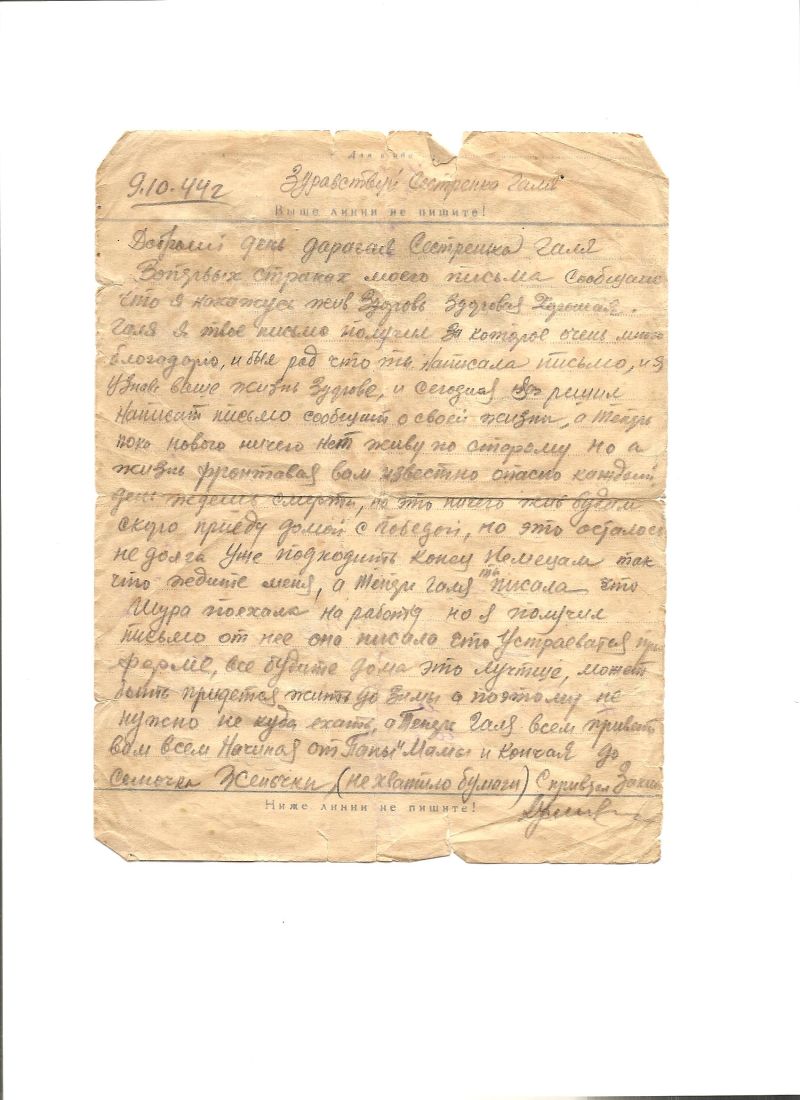 Для
9.10.44г
Здравствуй Сестренка Галя
Выше линии не пишите!
Добрый день дарагая Сестренка Галя
Вопервых страках моего письма сообщаю
что я жив Здоровь Здоровая Хорошая.
Галя я твое письмо получил За которое очень много
благодарю, и был рад что ты написала письмо, и я
узнав ваше жизнь, и сегодня решил
написат письмо сообщат о своей жизни, а теперь
пока нового ничего нет живу по старому но а
жизнь фронтовая вам известно опасно каждый
день ждешь смерти, но это ничего жив будем
скоро приеду домой с Победой, но это осталось
не долга Уже подходить конец Немецам так
что ждите меня, а Теперь Галя ты писала что
Шура поехала на работу но я получил
письмо от нее она писала что Устраеватся при
ферме, все будите дома это лучтще, может
быть придется жить до Зимы а поэтому не
нужно не куда ехать, а Теперь Галя всем привет
вам всем Начиная от Папы Мамы и Кончая до
самочки Женьчки (не хватило бумаги) С привзом
Ниже линии не пишите!